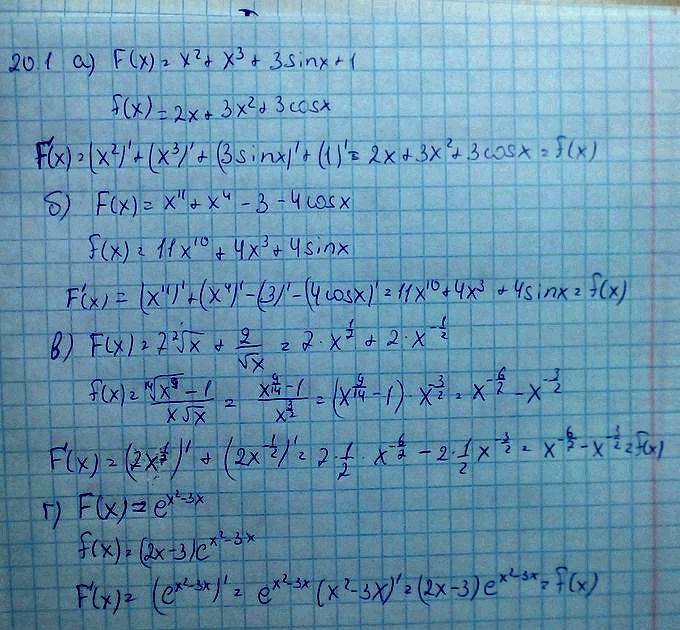 20.1 а) F(x) = x² + x³ + 3sinx + 1
f(x) = 2x + 3x² + 3cosx
F'(x) = (x²)' + (x³)' + (3sinx)' + (1)' = 2x + 3x² + 3cosx = f(x)
б) F(x) = x¹¹ + x⁴ - 3 - 4cosx
f(x) = 11x¹⁰ + 4x³ + 4sinx
F'(x) = (x¹¹)' + (x⁴)' - (3)' - (4cosx)' = 11x¹⁰ + 4x³ + 4sinx = f(x)
в) F(x) = 7 ⁷√x + 2/√x = 7·x^(1/7) + 2·x^(-1/2)
f(x) = (¹⁴√x⁹ - 1)/(x√x) = (x^(9/14) - 1)/x^(3/2) = (x^(9/14) - 1)·x^(-3/2) = x^(-6/7) - x^(-3/2)
F'(x) = (7x^(1/7))' + (2x^(-1/2))' = 7·1/7·x^(-6/7) - 2·1/2 x^(-3/2) = x^(-6/7) - x^(-3/2) = f(x)
г) F(x) = e^(x²-3x)
f(x) = (2x-3)e^(x²-3x)
F'(x) = (e^(x²-3x))' = e^(x²-3x) (x²-3x)' = (2x-3) e^(x²-3x) = f(x)